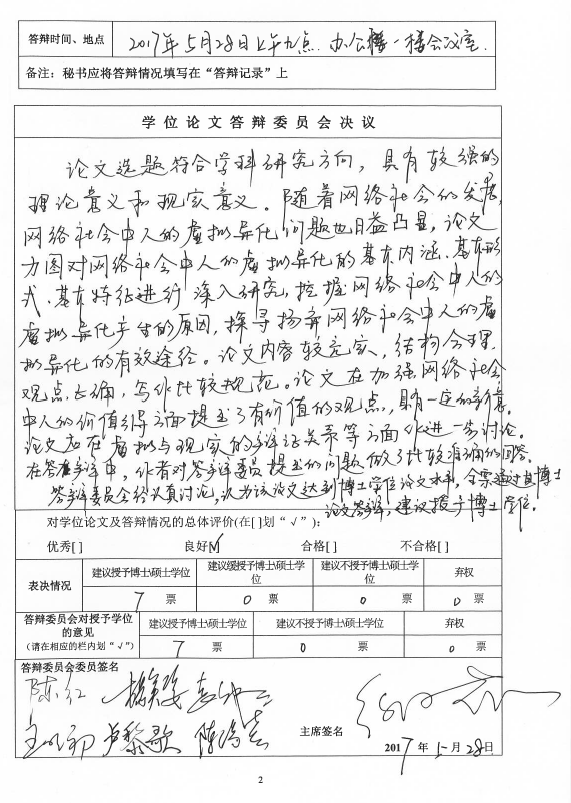 答辩时间、地点 2017年5月28日上午九点 办公楼一楼会议室.
备注：秘书应将答辩情况填写在“答辩记录”上
学位论文答辩委员会决议
论文选题符合学科研究方向，具有较强的
理论意义和现实意义。随着网络社会的发展,
网络社会中人的虚拟异化问题也日益凸显，论文
力图对网络社会中人的虚拟异化的基本内涵、基本形
式、基本特征进行深入研究，挖掘网络社会中人的
虚拟异化产生的原因，探寻扬弃网络社会中人的虚
拟异化的有效途径。论文内容较充实，结构合理，
观点正确，写作比较规范。论文在加强网络社会
中人的价值等方面提出了有价值的观点，具有一定的新意。
论文应在虚拟与现实的辩证关系等方面作进一步讨论。
在答辩中，作者对答辩委员提出的问题做了比较准确的回答。
答辩委员会经认真讨论，认为该论文达到博士学位论文水平，全票通过其博士
论文答辩，建议授予博士学位。
对学位论文及答辩情况的总体评价(在[ ]划“√”)：
优秀[ ] 良好[√] 合格[ ] 不合格[ ]
表决情况 建议授予博士\硕士学位 建议缓授予博士\硕士学位 建议不授予博士\硕士学位 弃权
7 票 0 票 0 票 0 票
答辩委员会对授予学位的意见 (请在相应的栏内划“√”) 建议授予博士\硕士学位 建议不授予博士\硕士学位 弃权
7 票 0 票 0 票
答辩委员会委员签名
陈红
卢黎歌
主席签名
2017年5月28日
2